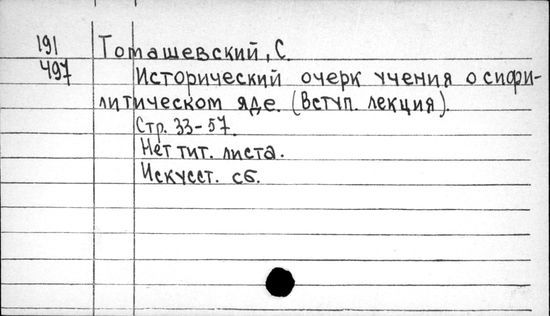 191 Томашевский, С.
497 Исторический очерк учения о сифи-
литическом яде. (Вступ. лекция).
Стр. 33-57.
Нет тит. листа.
Искусст. сб.